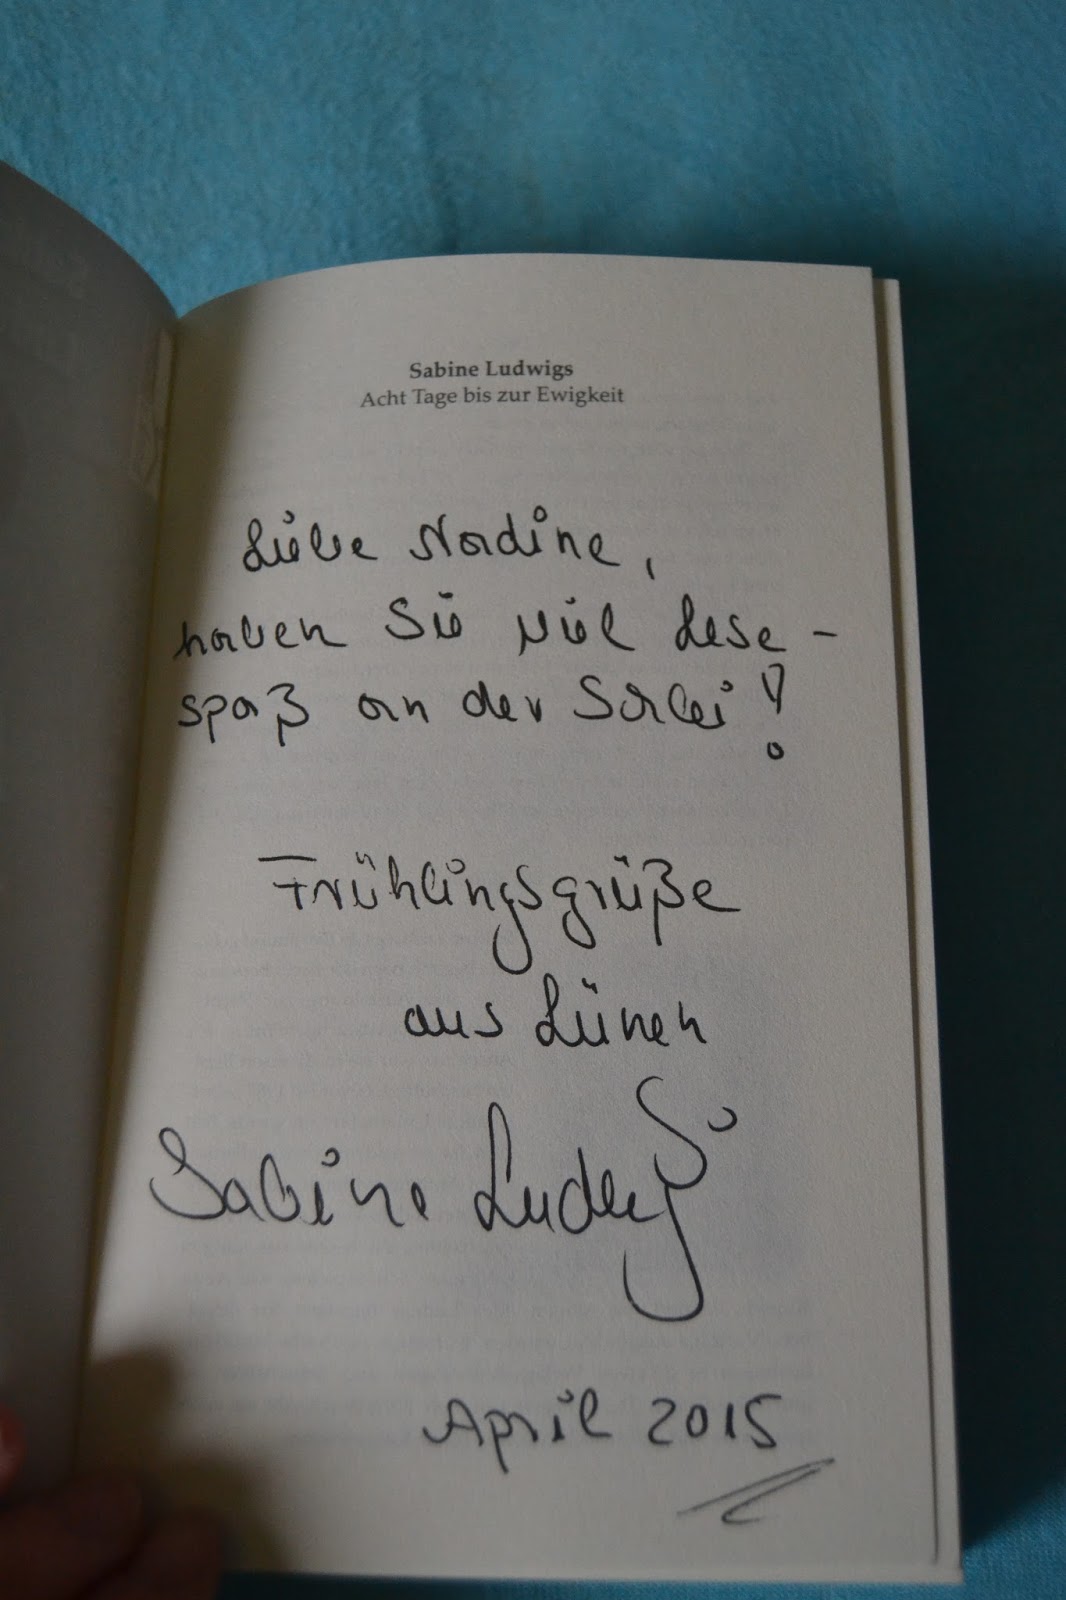 Sabine Ludwigs
Acht Tage bis zur Ewigkeit
Liebe Nadine,
haben Sie viel Lese-
spaß an der Schlei!
Frühlingsgrüße
aus Lünen
Sabine Ludwigs
April 2015